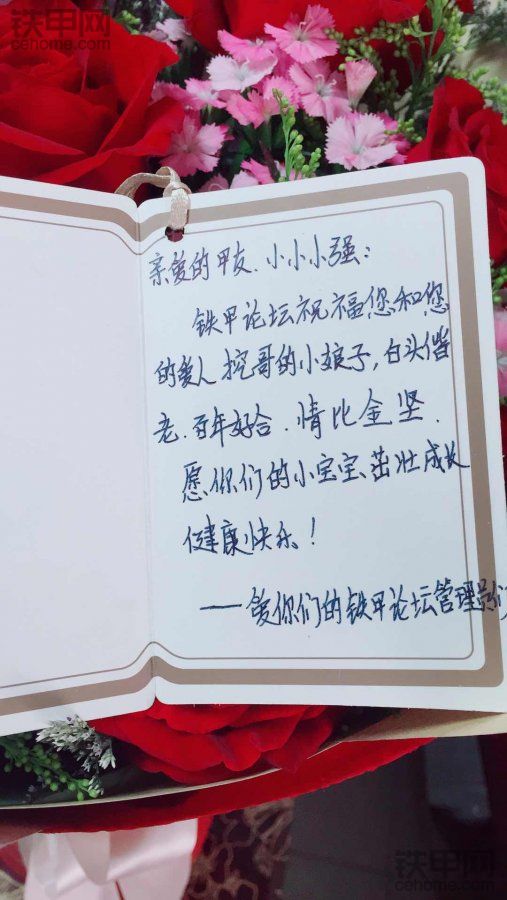 铁甲网
cehome.com
亲爱的甲友、小小小强：
铁甲论坛祝福您和您
的爱人挖哥的小娘子，白头偕
老、百年好合、情比金坚、
愿你们的小宝宝茁壮成长
健康快乐！
——爱你们的铁甲论坛管理员们
铁甲网
cehome.com